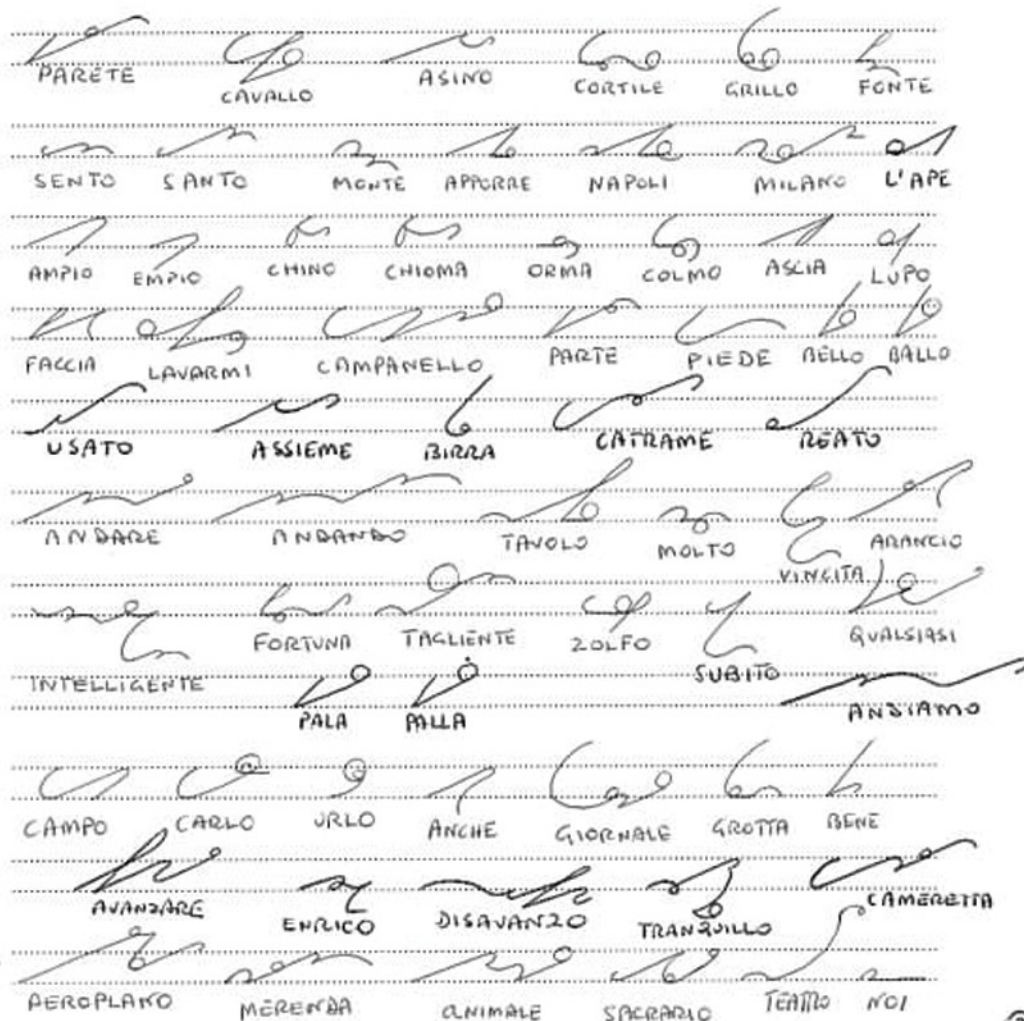 PARETE CAVALLO ASINO CORTILE GRILLO FONTE
SENTO SANTO MONTE APPORRE NAPOLI MILANO L'APE
AMPIO EMPIO CHINO CHIOMA ORMA COLMO ASCIA LUPO
FACCIA LAVARMI CAMPANELLO PARTE PIEDE BELLO BALLO
USATO ASSIEME BIRRA CATRAME REATO
ANDARE ANDANDO TAVOLO MOLTO VINCITA ARANCIO
INTELLIGENTE FORTUNA TAGLIENTE ZOLFO SUBITO QUALSIASI
PALA PALLA ANDIAMO
CAMPO CARLO URLO ANCHE GIORNALE GROTTA BENE
AVANZARE ENRICO DISAVANZO TRANQUILLO CAMERETTA
AEROPLANO MERENDA ANIMALE SACRARIO TEATRO NOI